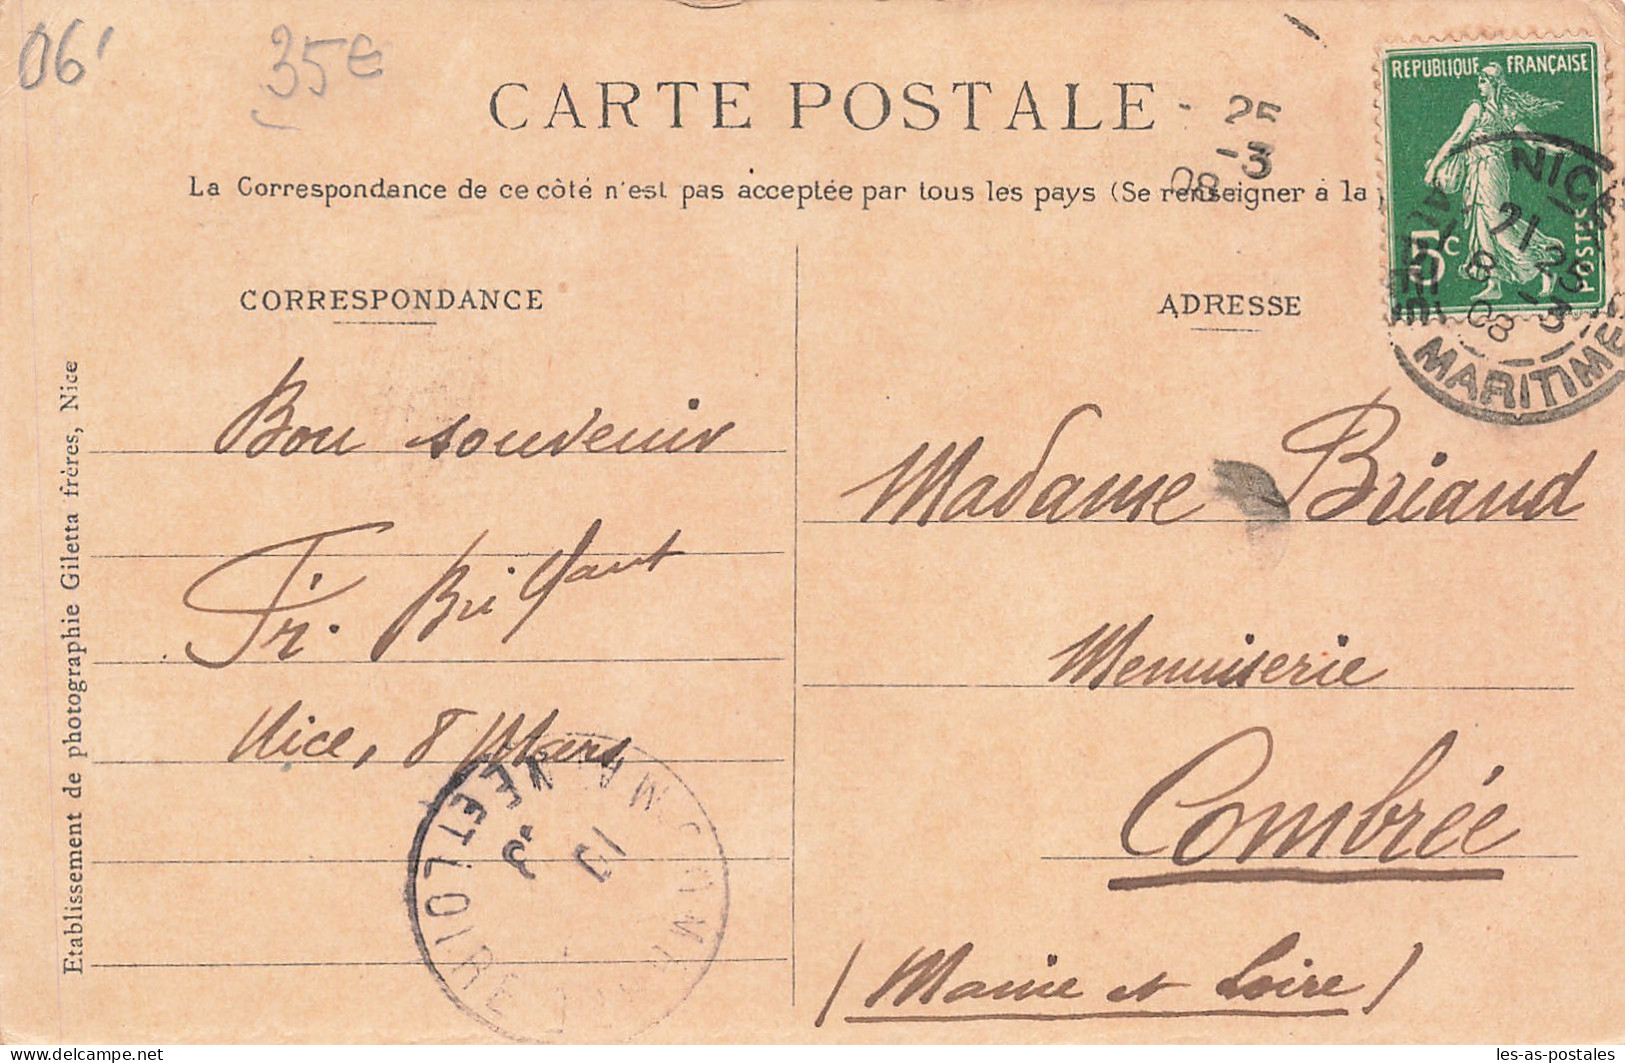 06'
35e
CARTE POSTALE
La Correspondance de ce côté n'est pas acceptée par tous les pays (Se renseigner à la
25
-3
08
REPUBLIQUE FRANÇAISE
POSTES
5c
NICE
21 25
8 -3
08
MARITIME
CORRESPONDANCE
Bon souvenir
Fr.
Nice, 8 Mars
ADRESSE
Madame Briand
Menuiserie
Combrée
(Maine et Loire)
MAINE ET LOIRE
10
-3
Etablissement de photographie Giletta frères, Nice
les-as-postales
www.delcampe.net